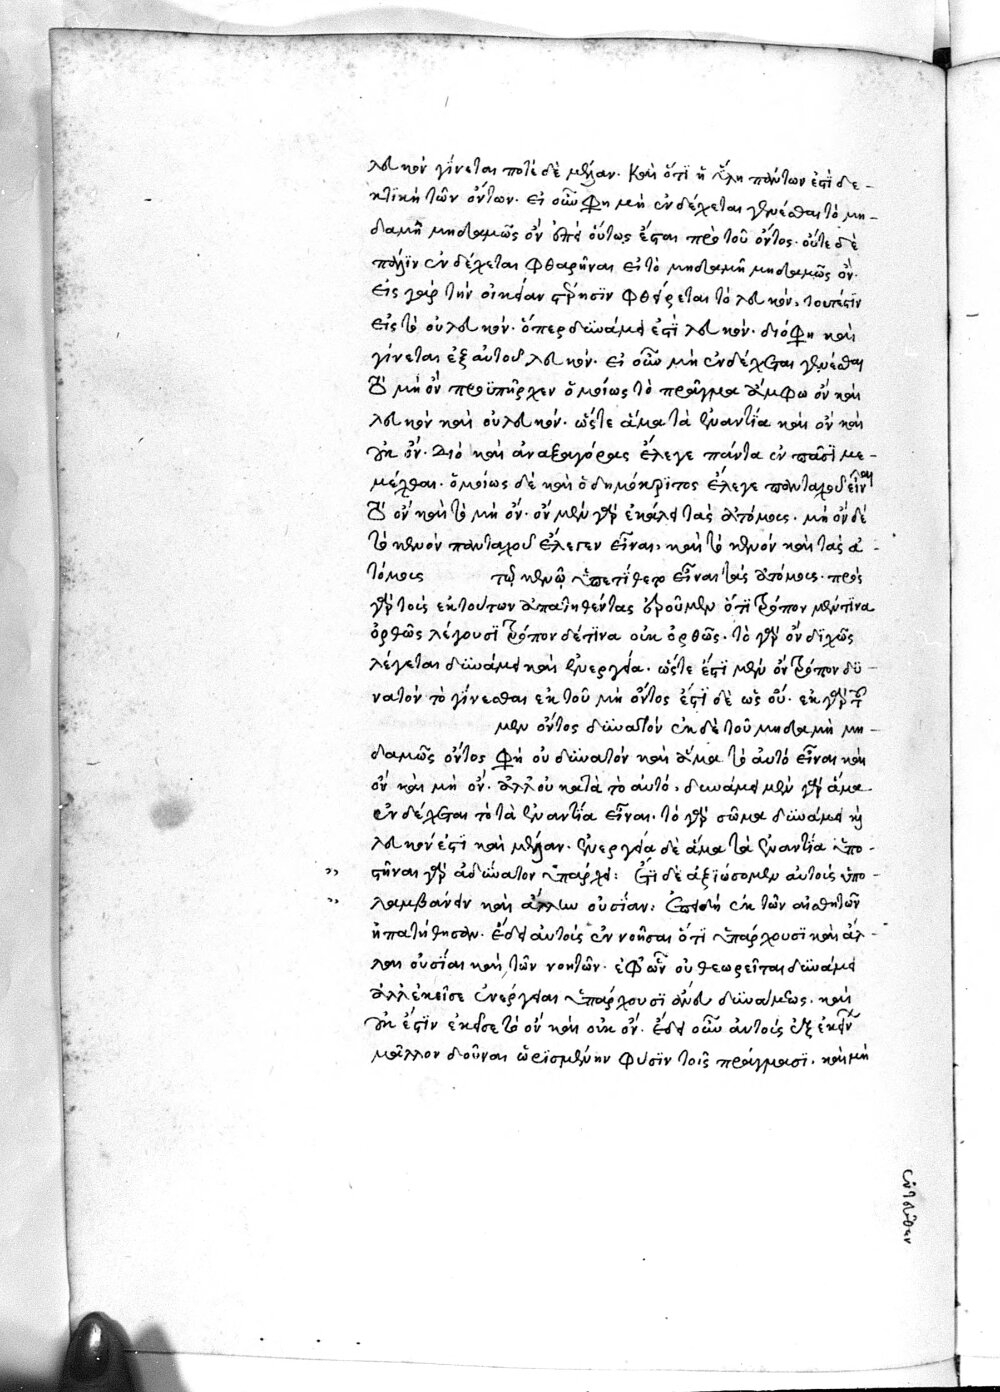 λευκὸν γίνεται ποτὲ δὲ μέλαν. Καὶ ὅτι ἡ ὕλη πάντων ἐστὶ δε-
κτικὴ τῶν ὄντων. Εἰ οὖν φη μὴ ἐνδέχεται γενέσθαι τὸ μη-
δαμῆ μηδαμῶς ὂν ὑπὸ ὄντως ἔσται πρὸ τοῦ ὄντος. οὔτε δὲ
πάλιν ἐνδέχεται φθαρῆναι εἰς τὸ μηδαμῆ μηδαμῶς ὄν.
Εἰς γὰρ τὴν οἰκείαν στέρησιν φθείρεται τὸ λευκόν, τουτέστιν
εἰς τὸ οὐ λευκόν. ὅπερ δυνάμει ἐστὶ λευκόν. διό φη καὶ
γίνεται ἐξ αὐτοῦ λευκόν. εἰ οὖν μὴ ἐνδέχεται γενέσθαι
τὸ μὴ ὂν προϋπῆρχεν ὁμοίως τὸ πρᾶγμα ἄμφω ὂν καὶ
λευκὸν καὶ οὐ λευκόν. ὥστε ἅμα τὰ ἐναντία καὶ ὂν καὶ
οὐκ ὄν. Διὸ καὶ ἀναξαγόρας ἔλεγε πάντα ἐν πᾶσι με-
μίχθαι. ὁμοίως δὲ καὶ ὁ δημόκριτος ἔλεγε πανταχοῦ εἶναι
τὸ ὂν καὶ τὸ μὴ ὄν. ὂν μὲν γὰρ ἐκάλει τὰς ἀτόμους. μὴ ὂν δὲ
τὸ κενὸν πανταχοῦ ἔλεγεν εἶναι, καὶ τὸ κενὸν καὶ τὰς ἀ-
τόμους τῷ κενῷ ὑπετίθετο εἶναι τὰς ἀτόμους. πρὸς
γὰρ τοὺς ἐκ τούτων ἀπατηθέντας ἐροῦμεν ὅτι τρόπον μέν τινα
ὀρθῶς λέγουσι τρόπον δέ τινα οὐκ ὀρθῶς. τὸ γὰρ ὂν διχῶς
λέγεται δυνάμει καὶ ἐνεργείᾳ. ὥστε ἔστι μὲν ὂν τρόπον δυ-
νατὸν τὸ γίνεσθαι ἐκ τοῦ μὴ ὄντος ἔστι δὲ ὡς οὔ. ἐκ γὰρ τοῦ
μὲν ὄντος δυνατὸν ἐκ δὲ τοῦ μηδαμῆ μη-
δαμῶς ὄντος φη οὐ δυνατὸν καὶ ἅμα τὸ αὐτὸ εἶναι καὶ
ὂν καὶ μὴ ὄν. ἀλλ' οὐ κατὰ τὸ αὐτό, δυνάμει μὲν γὰρ ἅμα
ἐνδέχεται τὸ τὰ ἐναντία εἶναι. τὸ γὰρ σῶμα δυνάμει καὶ
λευκόν ἐστι καὶ μέλαν. ἐνεργείᾳ δὲ ἅμα τὰ ἐναντία ὑπο-
στῆναι γὰρ ἀδύνατον ὑπάρχει: Ἔτι δὲ ἀξιώσομεν αὐτοὺς ὑπο-
λαμβάνειν καὶ ἄλλην οὐσίαν: Ἐπειδὴ ἐκ τῶν αἰσθητῶν
ἠπατήθησαν. ἔδει αὐτοὺς ἐννοῆσαι ὅτι ὑπάρχουσι καὶ ἄλ-
λαι οὐσίαι καὶ τῶν νοητῶν. ἐφ' ὧν οὐ θεωρεῖται δυνάμει
ἀλλ' ἐκεῖσε ἐνέργειαι ὑπάρχουσι ἄνευ δυνάμεως. καὶ
οὐκ ἔστιν ἐκεῖσε τὸ ὂν καὶ οὐκ ὄν. ἔδει οὖν αὐτοὺς ἐξ ἐκείνων
μᾶλλον δοῦναι ὡρισμένην φύσιν τοῖς πράγμασι. καὶ μὴ
ἐντεῦθεν